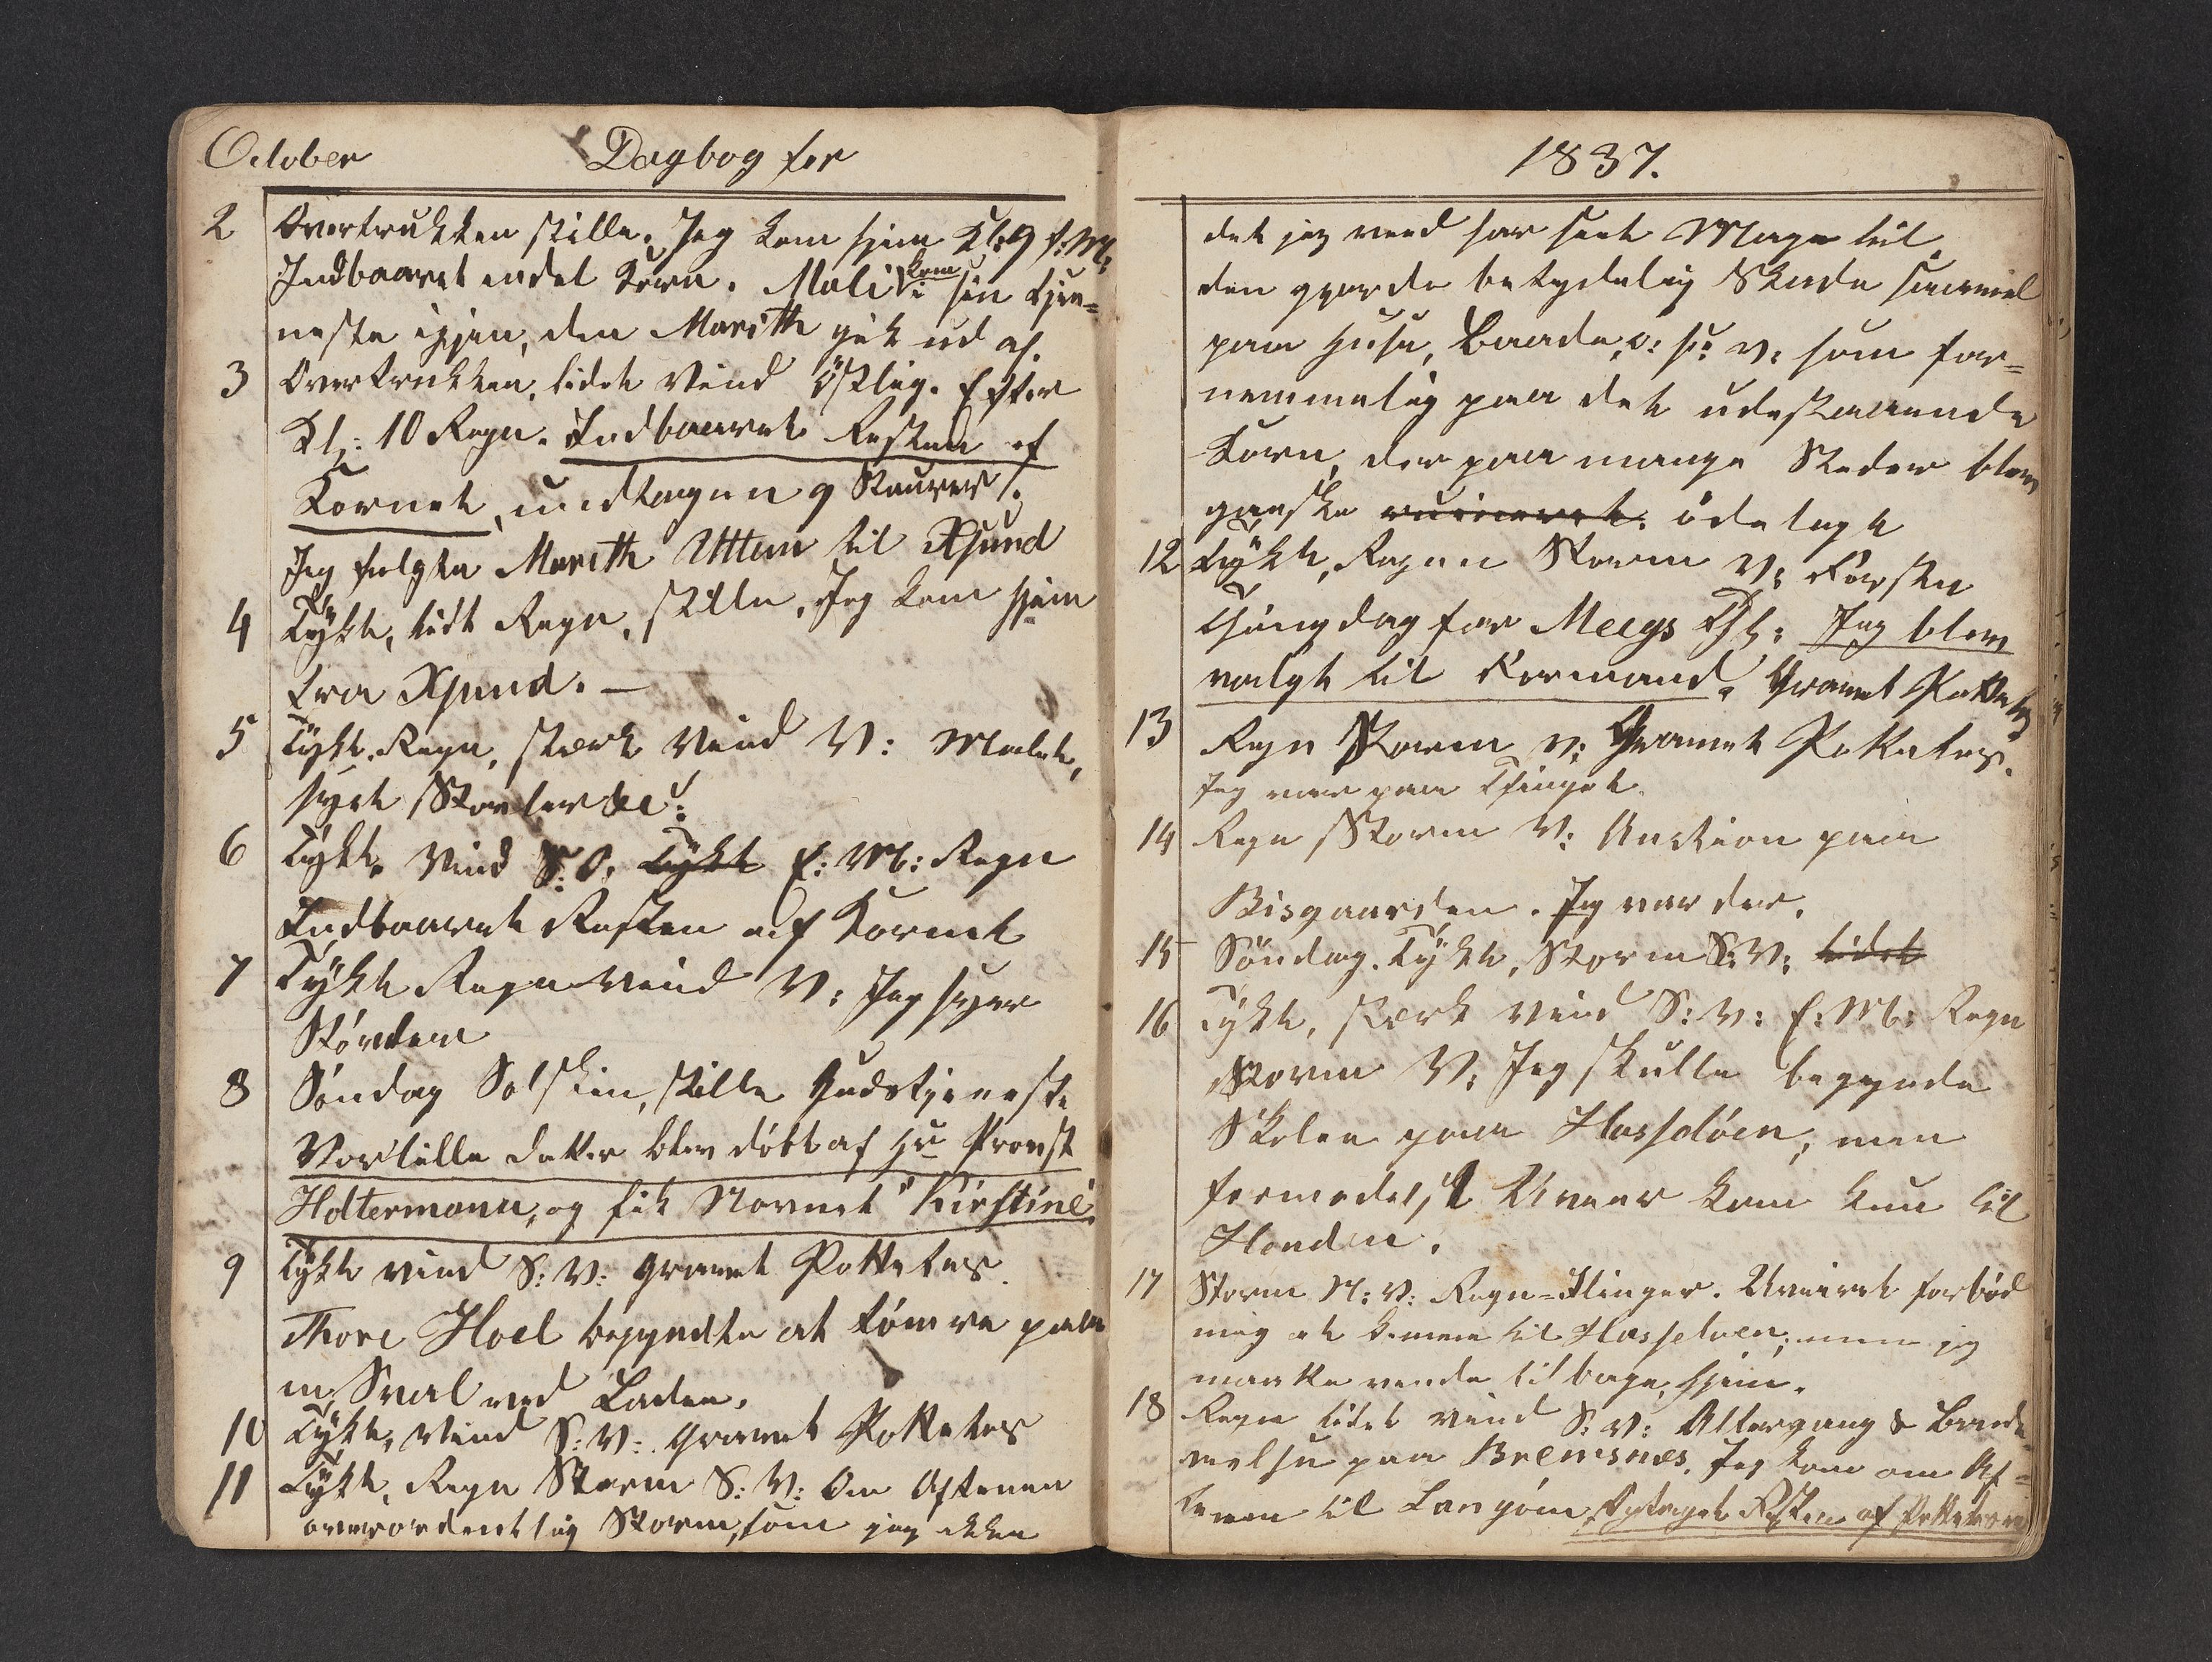 October Dagbog for
2 Overtrukken stille. Jeg kom hjem Kl: 9 f: M:
Indbaaret endel Korn. Mali kom i sin Tjen=
neste igjen, den Marith gik ud af.
3 Overtrukken, lidet Vind Östlig. Efter
Kl: 10 Regn. Indbaaret Resten af
Kornet, undtagen 9 Staurer.
Jeg fulgte Marith Uttun til Xsund
4 Tykt, lidt Regn, stille. Jeg kom hjem
fra Xsund. —
5 Tykt. Regn, stærk Vind V: Malet,
syet Støvler &c:
6 Tykt. Vind S: O. Tykt E: M: Regn
Indbaaret Resten af Kornet
7 Tykt Regn Vind V: Jeg syer
Støvler
8 Søndag Solskin, stille Gudstjeneste
Vor lille datter blev döbt af Hr Provst
Holtermann, og fik Navnet "Kirstine".
9 Tykt vind S: V: Gravet Pottetes.
Thore Hoel begyndte at tømre paa
en Sval ved Laden.
10 Tykt, Vind S: V: Gravet Pottetes
11 Tykt, Regn Storm S: V: Om Aftenen
overordentlig Storm, som jeg ikke
1837.
det jeg veed har seet Mage til,
den gjorde betydelig Skade saavel
paa Huse, Baade, o: s: v: som for=
nemmelig paa det udestaaende
Korn, der paa mange Steder blev
ganske ruineret. ödelagt
12 Tykt, Regn Storm V: Første
Thingdag for Meegs Th: Jeg blev
valgt til Formand. Gravet Pottetes
13 Regn Storm V: Gravet Potetes.
Jeg var paa Thinget.
14 Regn Storm V: Auction paa
Bisgaarden. Jeg var der.
15 Söndag. Tykt, Storm S: V: lidet
16 Tykt, stærk Vind S: V: E: M: Regn
Storm V: Jeg skulle begynde
Skolen paa Hasseløen, men
formedelst Uveær kom kun til
Henden.
17 Storm N: V: Regn=Ilinger. Uveiret forbød
mig at komme til Hasseløen; men jeg
maatte vende tilbage, hjem.
18 Regn lidet vind S: V: Altergang &
velse paa Bremsnes. Jeg kom om Af=
tenen til Langöien, Optaget Resten af Potteterne